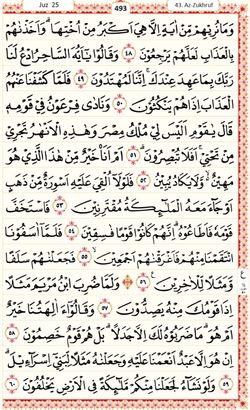 Juz 25 493 43. Az-Zukhruf
وَمَا نُرِيهِم مِّنْ ءَايَةٍ إِلَّا هِىَ أَكْبَرُ مِنْ أُخْتِهَا ۖ وَأَخَذْنَٰهُم
بِٱلْعَذَابِ لَعَلَّهُمْ يَرْجِعُونَ ٤٨ وَقَالُوا۟ يَٰٓأَيُّهَ ٱلسَّاحِرُ ٱدْعُ لَنَا
رَبَّكَ بِمَا عَهِدَ عِندَكَ إِنَّنَا لَمُهْتَدُونَ ٤٩ فَلَمَّا كَشَفْنَا عَنْهُمُ
ٱلْعَذَابَ إِذَا هُمْ يَنكُثُونَ ٥٠ وَنَادَىٰ فِرْعَوْنُ فِى قَوْمِهِۦ
قَالَ يَٰقَوْمِ أَلَيْسَ لِى مُلْكُ مِصْرَ وَهَٰذِهِ ٱلْأَنْهَٰرُ تَجْرِى
مِن تَحْتِىٓ ۖ أَفَلَا تُبْصِرُونَ ٥١ أَمْ أَنَا۠ خَيْرٌ مِّنْ هَٰذَا ٱلَّذِى هُوَ
مَهِينٌ وَلَا يَكَادُ يُبِينُ ٥٢ فَلَوْلَآ أُلْقِىَ عَلَيْهِ أَسْوِرَةٌ مِّن ذَهَبٍ
أَوْ جَآءَ مَعَهُ ٱلْمَلَٰٓئِكَةُ مُقْتَرِنِينَ ٥٣ فَٱسْتَخَفَّ
قَوْمَهُۥ فَأَطَاعُوهُ ۚ إِنَّهُمْ كَانُوا۟ قَوْمًا فَٰسِقِينَ ٥٤ فَلَمَّآ ءَاسَفُونَا
ٱنتَقَمْنَا مِنْهُمْ فَأَغْرَقْنَٰهُمْ أَجْمَعِينَ ٥٥ فَجَعَلْنَٰهُمْ سَلَفًا
وَمَثَلًا لِّلْءَاخِرِينَ ٥٦ وَلَمَّا ضُرِبَ ٱبْنُ مَرْيَمَ مَثَلًا
إِذَا قَوْمُكَ مِنْهُ يَصِدُّونَ ٥٧ وَقَالُوٓا۟ ءَأَٰلِهَتُنَا خَيْرٌ
أَمْ هُوَ ۚ مَا ضَرَبُوهُ لَكَ إِلَّا جَدَلًۢا ۚ بَلْ هُمْ قَوْمٌ خَصِمُونَ ٥٨
إِنْ هُوَ إِلَّا عَبْدٌ أَنْعَمْنَا عَلَيْهِ وَجَعَلْنَٰهُ مَثَلًا لِّبَنِىٓ إِسْرَٰٓءِيلَ ٥٩
وَلَوْ نَشَآءُ لَجَعَلْنَا مِنكُم مَّلَٰٓئِكَةً فِى ٱلْأَرْضِ يَخْلُفُونَ ٦٠